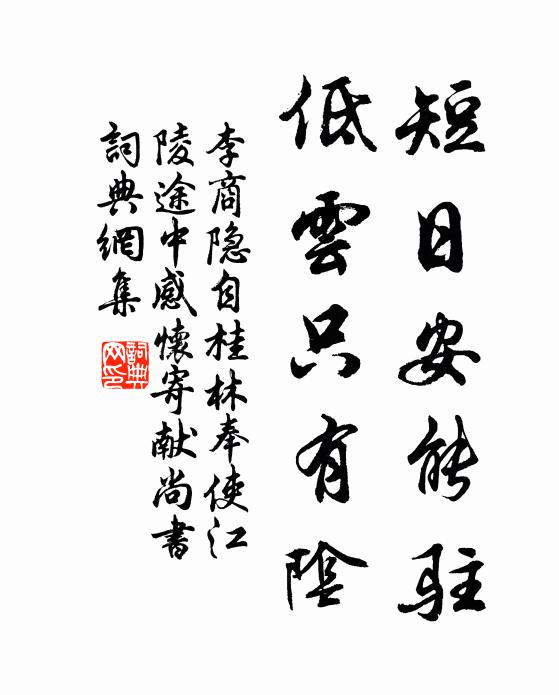 短日安能駐
低雲只有陰
李商隐自桂林奉使江
陵途中感懷寄献尚書
詞典網集
詞典
网印